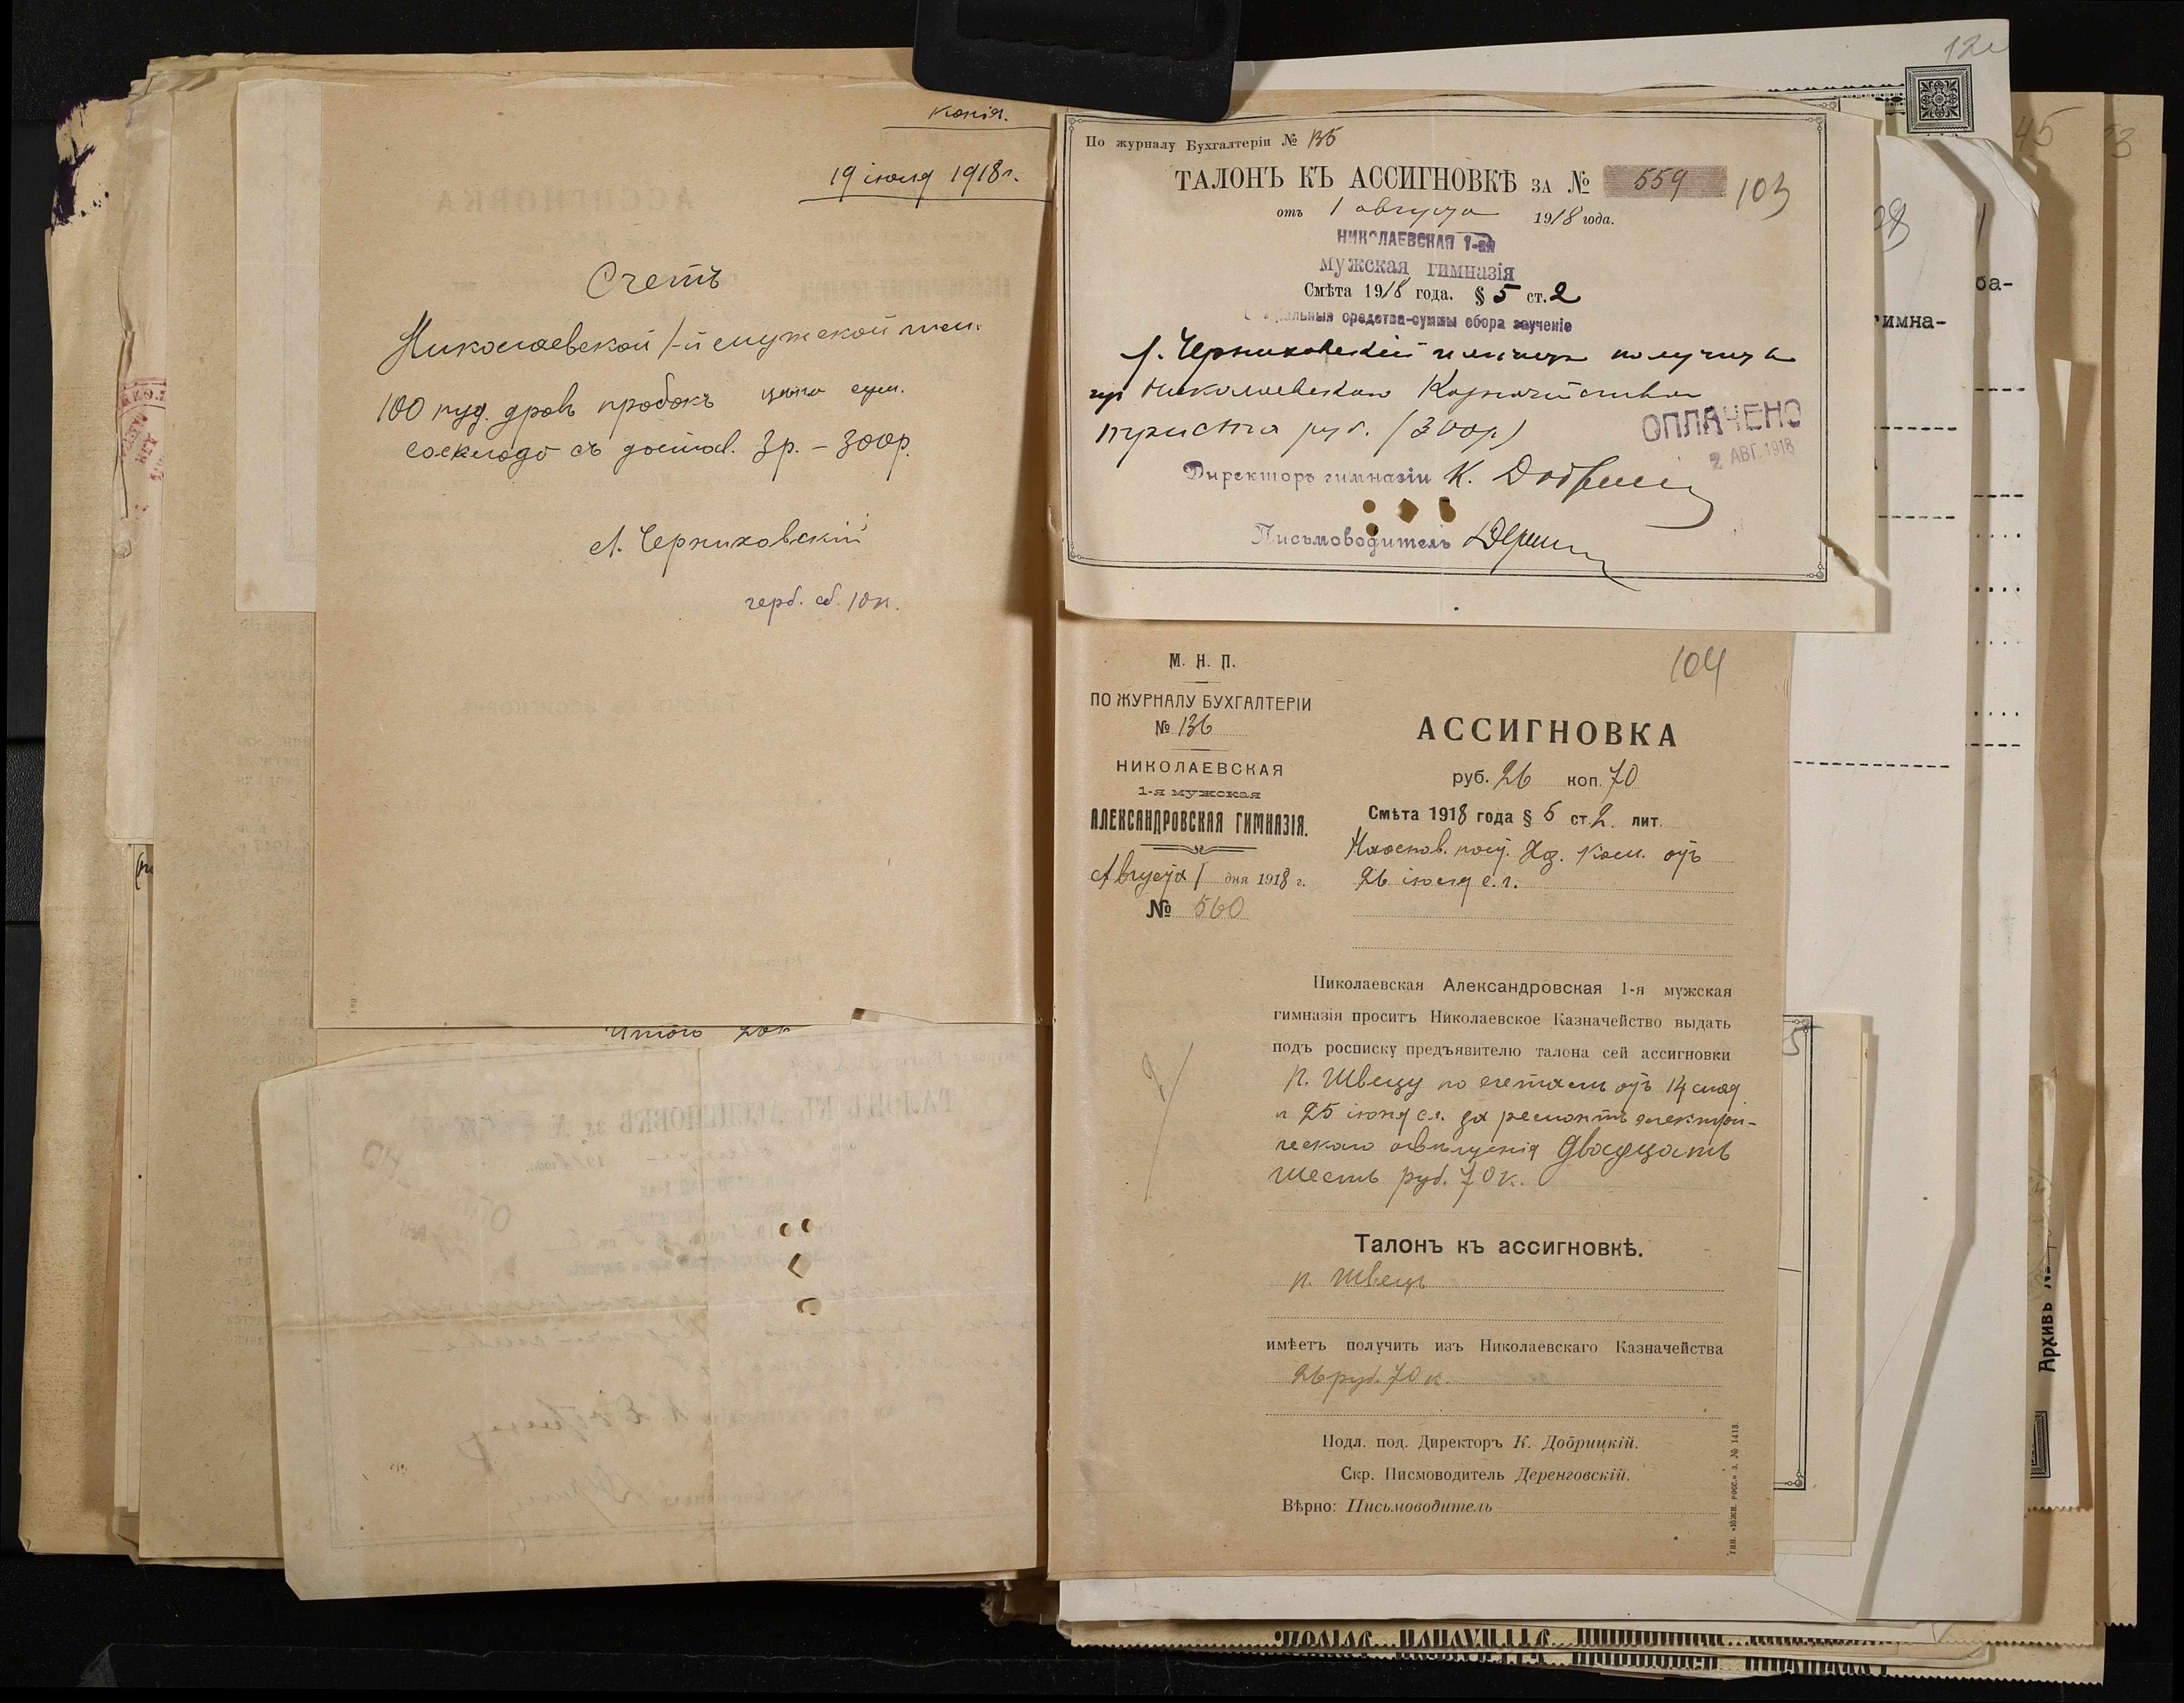 копія.
19 іюля 1918 г.
Счетъ
Николаевской 1-й мужской гим.
100 пуд. дровъ пробокъ цена сум.
со склада съ достав. 3р. – 300р.
Л. Черниховскій
герб. сб. 10 к.
Итого 20к
По журналу Бухгалтеріи № 135
ТАЛОНЪ КЪ АССИГНОВКѢ ЗА № 559
103
отъ 1 августа 1918 года.
НИКОЛАЕВСКАЯ 1-ая
мужская гимназія
Смѣта 1918 года. § 5 ст. 2
средства-суммы сбора за ученіе
Л. Черниховскій имѣетъ получить
изъ Николаевскаго Казначейства
триста руб. (300р.)
ОПЛАЧЕНО
2 АВГ. 1918
Директоръ гимназіи К.
Письмоводитель
104
М. Н. П.
ПО ЖУРНАЛУ БУХГАЛТЕРІИ
№ 136
НИКОЛАЕВСКАЯ
1-я мужская
АЛЕКСАНДРОВСКАЯ ГИМНАЗІЯ.
Августа 1 дня 1918 г.
№ 560
АССИГНОВКА
руб. 26 коп. 70
Смѣта 1918 года § 5 ст. 2. лит.
На основ. пост. Хоз. Ком. отъ
26 іюля с.г.
Николаевская Александровская 1-я мужская
гимназія проситъ Николаевское Казначейство выдать
подъ росписку предъявителю талона сей ассигновки
П. Швецу по счетамъ отъ 14 мая
и 25 іюня с.г. за ремонтъ электри-
ческаго освѣщенія двадцать
шесть руб. 70 к.
Талонъ къ ассигновкѣ.
П. Швецъ
имѣетъ получить изъ Николаевскаго Казначейства
26 руб. 70 к.
Подл. под. Директоръ К. Добрицкій.
Скр. Писмоводитель Деренговскій.
Вѣрно: Письмоводитель
Тип. «Южн. Росс.» З. № 1413.
120
45
ба-
гимна-
Архивъ №